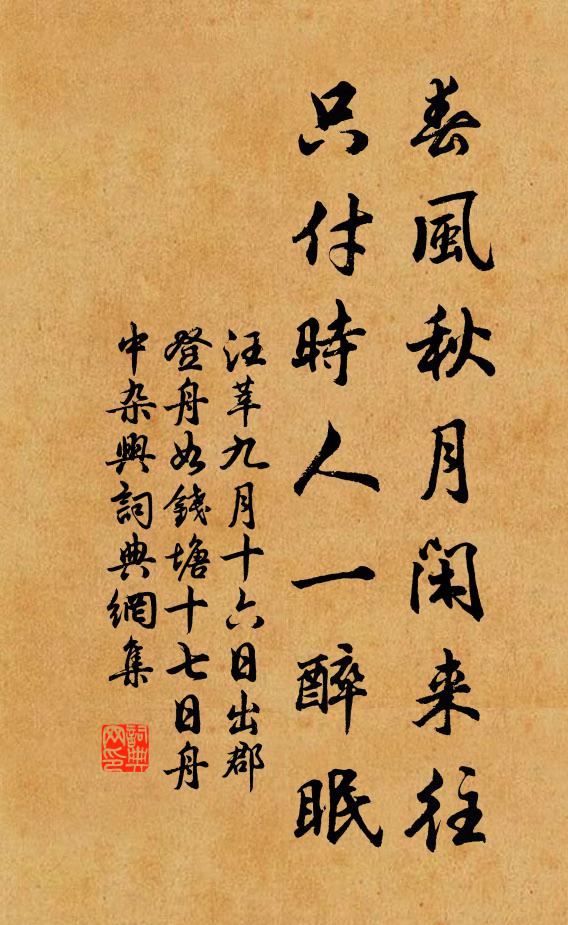 春風秋月閑来往
只付時人一醉眠
汪莘九月十六日出郡
登舟如錢塘十七日舟
中杂興詞典網集
詞典
网印